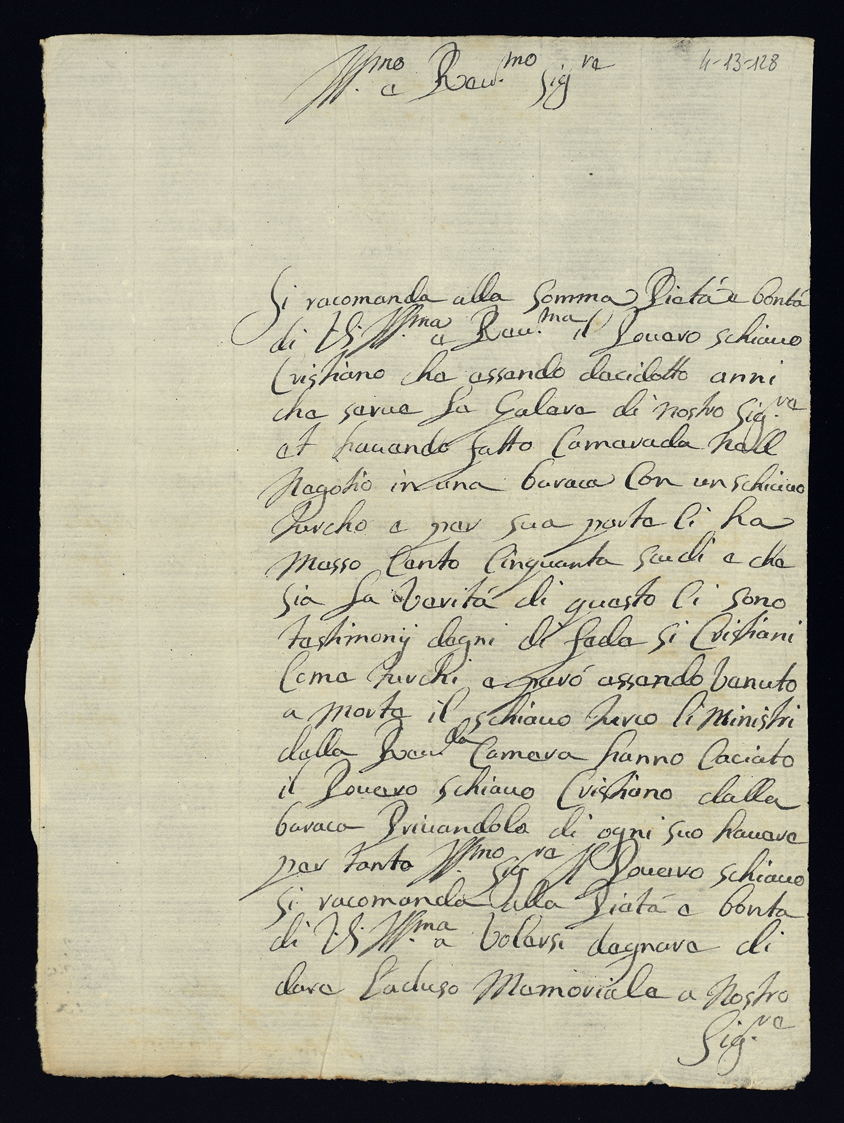 Ill.mo e Reu.mo Sig.re
4-13-128
Si racomanda alla Somma Pietá e bontá
di V.S. Ill.ma e Reu.ma il Pouero schiauo
Cristiano che essendo decidotto anni
che serue La Galere di nostro Sig.re
et hauendo fatto Camerada nell
Negotio in una baraca Con un schiauo
Turcho e per sua parte li ha
Messo Cento Cinquanta scudi e che
sia La Veritá di questo Ci sono
testimonij degni di fede si Cristiani
Come Turchi e peró essendo Venuto
a morte il schiauo Turco li Ministri
della Reu.da Camera hanno Caciato
il Pouero schiauo Cristiano dalla
baraca Priuandolo di ogni suo hauere
per tanto Ill.mo Sig.re Il Pouero schiauo
si racomanda alla Pietá e bonta
di V.S. Ill.ma a Volersi degnare di
dare L'acluso Memoriale a Nostro
Sig.re